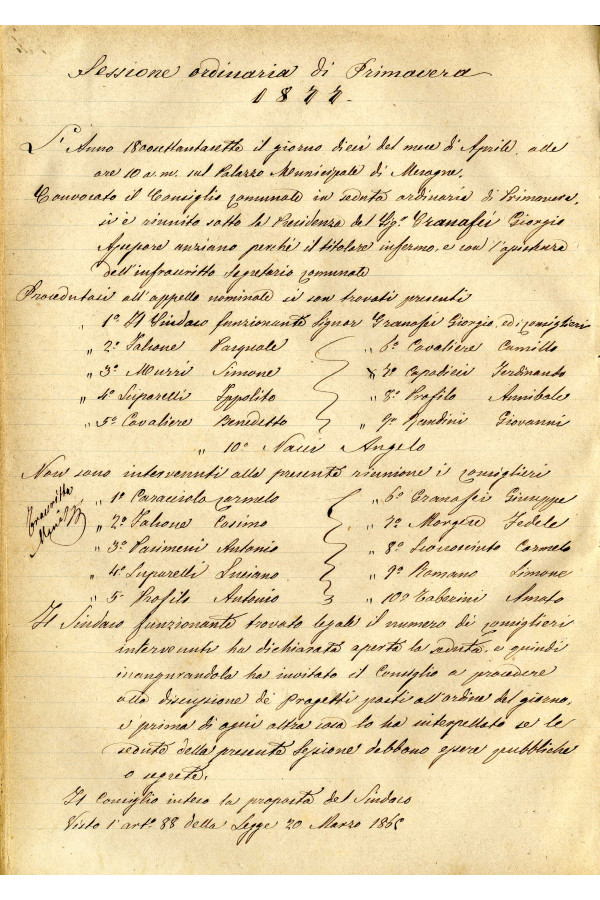 Sessione ordinaria di Primavera
1877.
L'Anno 1800settantasette il giorno dieci del mese di Aprile, alle
ore 10 a.m. sul Palazzo Municipale di Mesagne,
Convocato il Consiglio comunale in seduta ordinaria di Primavera,
si è riunito sotto la Presidenza del Sigr Granafei Giorgio
Assessore anziano perché il titolare infermo, e con l'assistenza
dell'infrascritto Segretario comunale
Procedutasi all'appello nominale si son trovati presenti
„ 1º Il Sindaco funzionante Signor Granafei Giorgio, ed i consiglieri
„ 2º Falcone Pasquale „ 6º Cavaliere Camillo
„ 3º Murri Simone „ 7º Capodieci Ferdinando
„ 4º Luparelli Ippolito „ 8º Profilo Annibale
„ 5º Cavaliere Benedetto „ 9º Nardini Giovanni
„ 10º Nacci Angelo
Non sono intervenuti alla presente riunione i consiglieri
„ 1º Caracciolo Carmelo „ 6º Granafei Giuseppe
„ 2º Falcone Cosimo „ 7º Morgese Fedele
„ 3º Pasimeni Antonio „ 8º Scoscinto Carmelo
„ 4º Luparelli Luciano „ 9º Romano Simone
„ 5º Profilo Antonio „ 10º Taberini Amato
Il Sindaco funzionante trovato legale il numero di consiglieri
intervenuti ha dichiarata aperta la seduta, e quindi
inaugurandola ha invitato il Consiglio a procedere
alla discussione de' Progetti posti all'ordine del giorno,
e prima di ogni altra cosa lo ha interpellato se le
sedute della presente Sessione debbono essere pubbliche
o segrete.
Il Consiglio inteso la proposta del Sindaco
Visto l'artº 88 della Legge 20 Marzo 1865